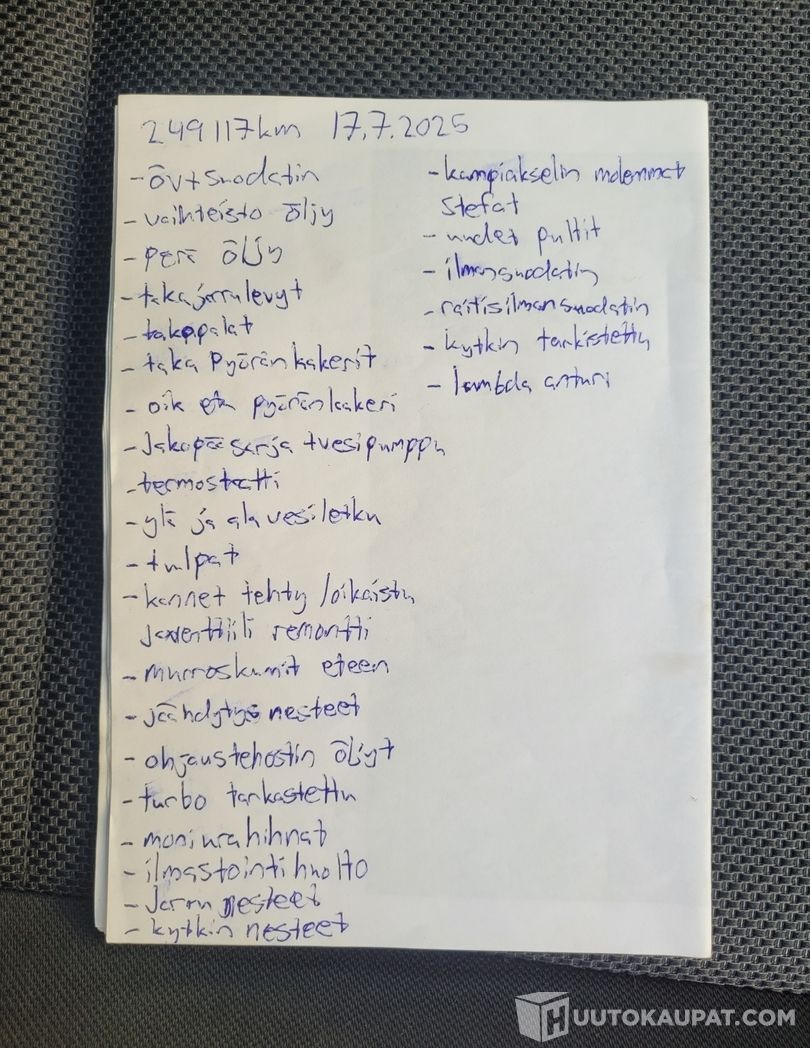 249117km 17.7.2025
- öv+suodatin
- vaihteisto öljy
- perä öljy
- takajarrulevyt
- takapalat
- taka pyöränlaakerit
- oik etu pyöränlaakeri
- Jakopää sarja +vesipumppu
- termostatti
- ylä ja ala vesiletku
- tulpat
- kannet tehty /oikaistu
ja venttiili remontti
- murroskumit eteen
- jäähdytys nesteet
- ohjaustehostin öljyt
- turbo tarkastettu
- moniurahihnat
- ilmastointi huolto
- Jarru nesteet
- kytkin nesteet
- kampiakselin molemmat
stefat
- uudet pultit
- ilmansuodatin
- raitisilmansuodatin
- kytkin tarkistettu
- lambda anturi
HUUTOKAUPAT.COM